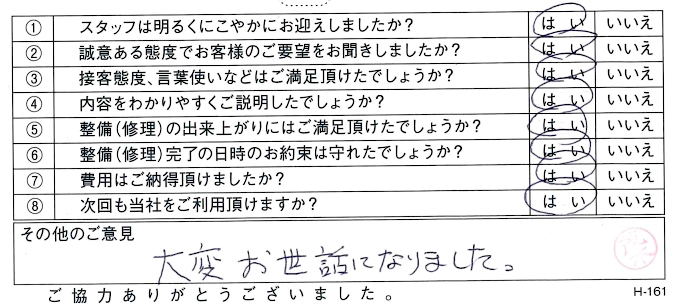 ① スタッフは明るくにこやかにお迎えしましたか? はい いいえ
② 誠意ある態度でお客様のご要望をお聞きしましたか? はい いいえ
③ 接客態度、言葉使いなどはご満足頂けたでしょうか? はい いいえ
④ 内容をわかりやすくご説明したでしょうか? はい いいえ
⑤ 整備(修理)の出来上がりにはご満足頂けたでしょうか? はい いいえ
⑥ 整備(修理)完了の日時のお約束は守れたでしょうか? はい いいえ
⑦ 費用はご納得頂けましたか? はい いいえ
⑧ 次回も当社をご利用頂けますか? はい いいえ
その他のご意見
大変お世話になりました。
ご協力ありがとうございました。 H-161